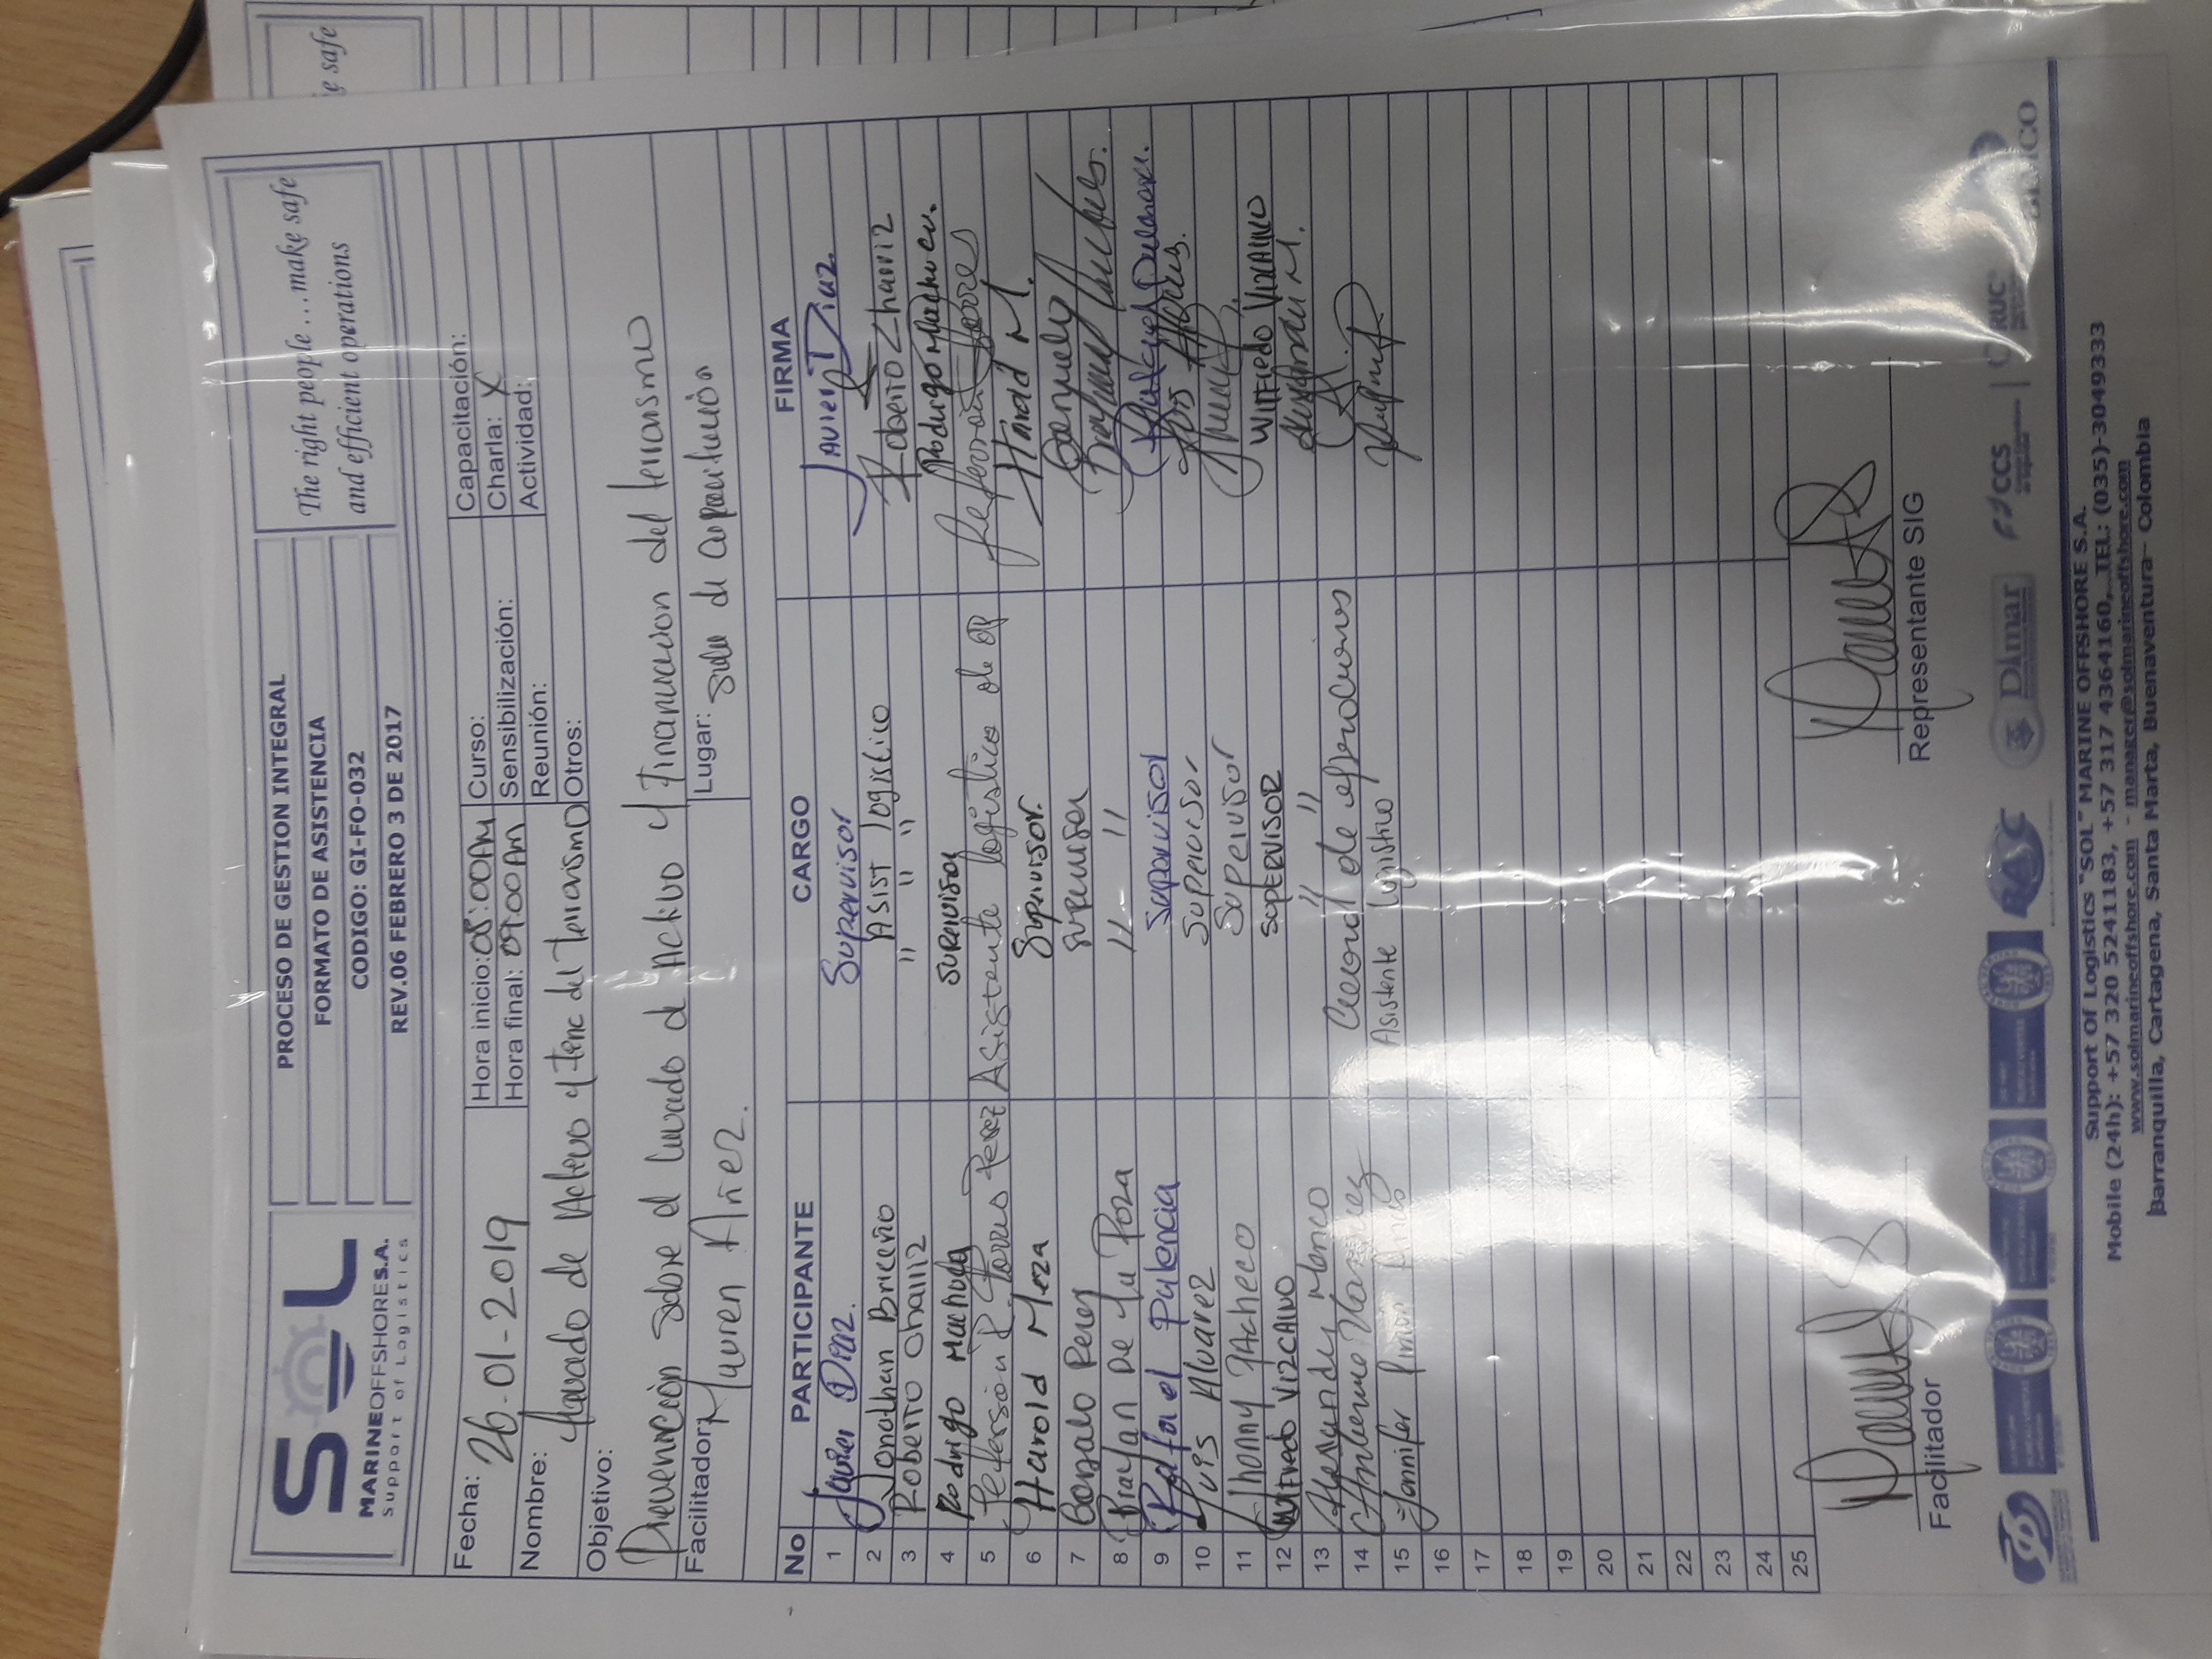 SOL
MARINEOFFSHORES.A.
Support of Logistics
PROCESO DE GESTION INTEGRAL
FORMATO DE ASISTENCIA
CODIGO: GI-FO-032
REV.06 FEBRERO 3 DE 2017
The right people ...make safe
and efficient operations
e safe
Fecha: 26-01-2019
Hora inicio: 08:00AM
Hora final: 09:00AM
Curso:
Sensibilización:
Reunión:
Otros:
Capacitación:
Charla: X
Actividad:
Nombre: Lavado de Activo y del terrorismo
Objetivo:
Prevención sobre el Lavado d Activo y Financiacion del terrorismo
Facilitador: Mauren Añez.
Lugar: Sala de Capacitación
No PARTICIPANTE CARGO FIRMA
1 Javier Diaz. Supervisor Javier Diaz.
2 Jonathan Briceño ASIST logistico
3 Roberto Charriz " " " Roberto Charriz
4 Rodrigo Machuca SUPERVISOR Rodrigo Machuca.
5 Jefersson R. Torres Perez Asistente logistico de OP Jefersson Torres
6 Harold Meza Supervisor. Harold M.
7 Gonzalo Perez SUPERVISOR Gonzalo
8 Brayan De la Roza " "
9 Rafael Palencia Supervisor Rafael Palencia.
10 Luis Alvarez Supervisor Luis
11 Jhonny PAcheco Supervisor
12 Wilfredo VIZCAINO SUPERVISOR Wilfredo VIZCAINO
13 Alexander Menco " " Alexander M.
14 Coord de operaciones
15 Jennifer Asistente Logistico
16
17
18
19
20
21
22
23
24
25
Facilitador
Representante SIG
BASC
Dimar
CCS
RUC
BIMCO
Support Of Logistics "SOL" MARINE OFFSHORE S.A.
Mobile (24h): +57 320 5241183, +57 317 4364160, TEL: (035)-3049333
www.solmarineoffshore.com - manager@solmarineoffshore.com
Barranquilla, Cartagena, Santa Marta, Buenaventura– Colombia